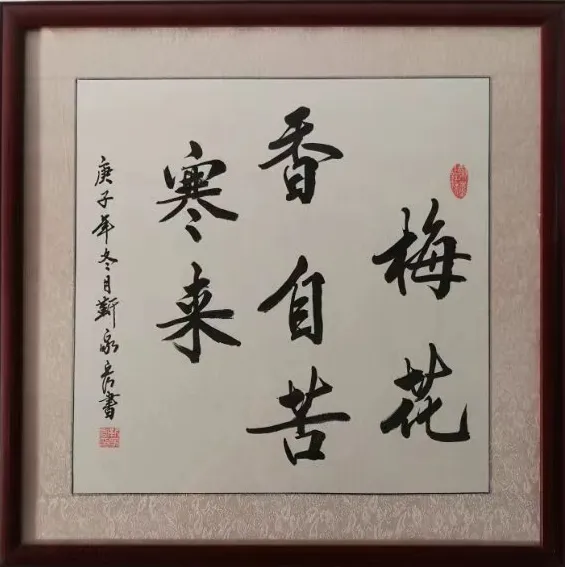 梅花
香自苦
寒来
庚子年冬月靳泉彦書